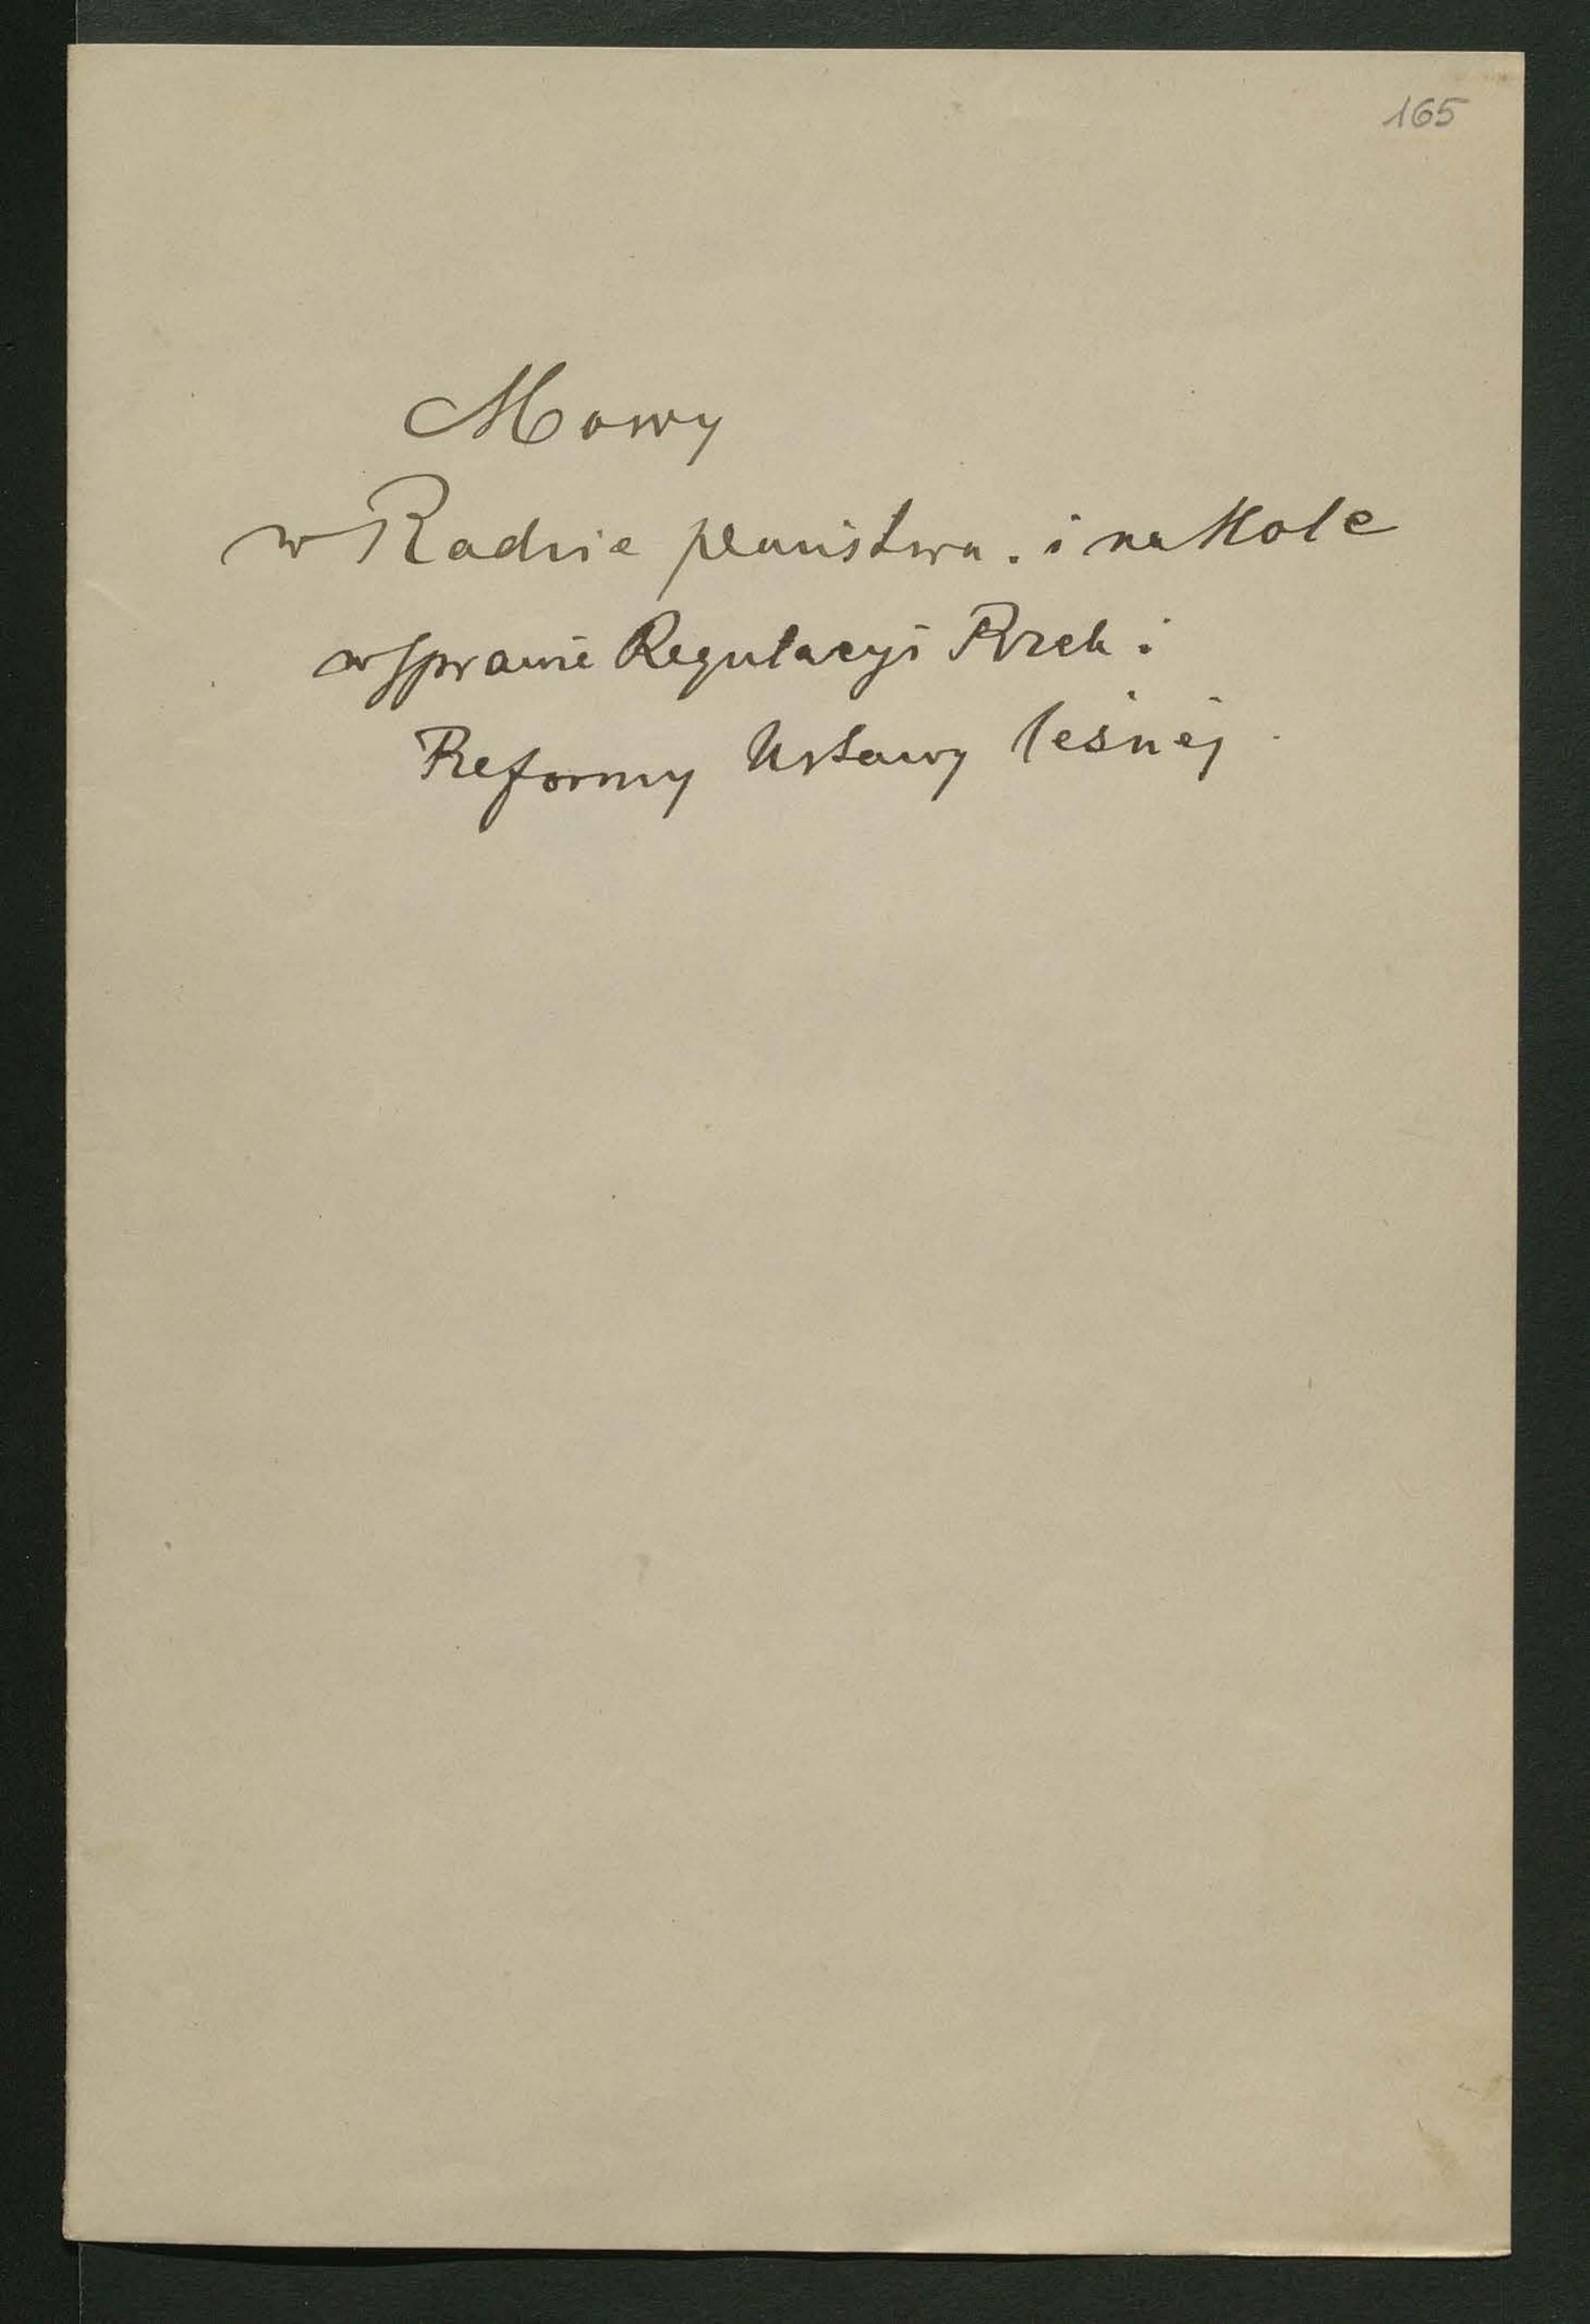 165
Mowy
w Radzie państwa. i na Kole
w sprawie Regulacyi Rzek i
Reformy Ustawy leśnej.